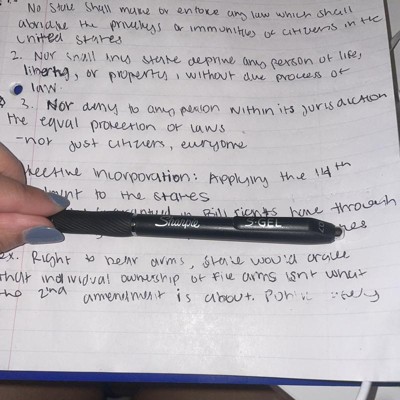 No State Shall make or enforce any law which shall
abridge the privileges or immunities of citizens in the
United States
2. Nor shall any state deprive any person of life,
liberty, or property, without due process of
law.
3. Nor deny to any person within its jurisdiction
the equal protection of laws
-not just citizens, everyone
lective incorporation: Applying the 14th
to the states
in Bill rights have through
Sharpie S·GEL
ex. Right to bear arms, state would argue
that individual ownership of fire arms isnt what
the 2nd amendment is about.